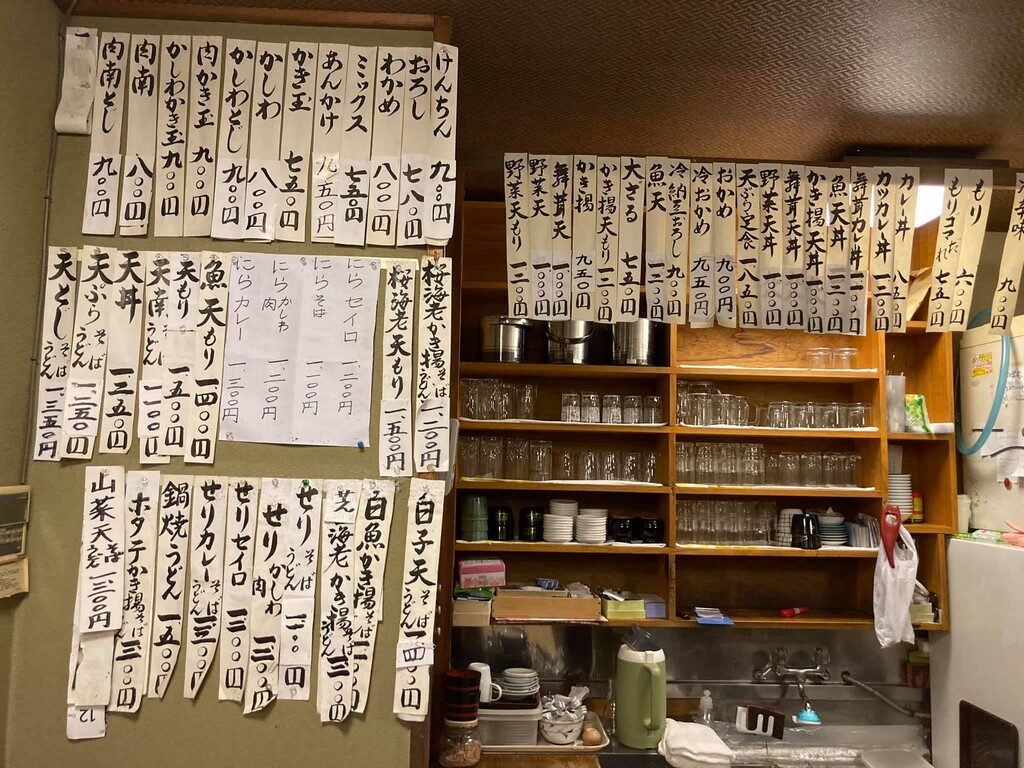 けんちん 九〇〇円
おろし 七八〇円
わかめ 八〇〇円
ミックス 七五〇円
あんかけ 九五〇円
かき玉 七五〇円
かしわ 八〇〇円
かしわとじ 九〇〇円
肉かき玉 九〇〇円
かしわかき玉 九〇〇円
肉南 八〇〇円
肉南とじ 九〇〇円
桜海老かき揚 そば うどん 一、二〇〇円
桜海老天もり 一、五〇〇円
にらセイロ 一、二〇〇円
にらそば 一、一〇〇円
にらかしわ 肉 一、二〇〇円
にらカレー 一、三〇〇円
魚天もり 一四〇〇円
天もり 一五〇〇円
天南 うどん 一一〇〇円
天丼 一三五〇円
天ぷら そば うどん 一二五〇円
天とじ そば うどん 一、三五〇円
白子天 そば うどん 一四〇〇円
白魚かき揚 そば うどん
芝海老かき揚 そば うどん 一三〇〇円
せり そば うどん 一一〇〇円
せりかしわ 肉 一二〇〇円
せりセイロ 一二〇〇円
せりカレー そば うどん 一三〇〇円
鍋焼うどん 一五〇〇円
ホタテかき揚 そば うどん 一三〇〇円
山菜天 そば うどん 一三〇〇円
12
九〇〇円
もり 六〇〇円
もりゴマだれ 七五〇円
カレー丼 八五〇円
カツカレー丼 一一〇〇円
舞茸カレー丼
魚天丼 一二〇〇円
かき揚天丼 一一〇〇円
舞茸天丼 一一〇〇円
野菜天丼 一一〇〇円
天ぷら定食 一八五〇円
おかめ 九五〇円
冷おかめ 九五〇円
冷納豆おろし 九〇〇円
魚天 一二〇〇円
大ざる 七五〇円
かき揚天もり 一二〇〇円
かき揚 九五〇円
舞茸天 一〇〇〇円
野菜天 一〇〇〇円
野菜天もり 一二〇〇円